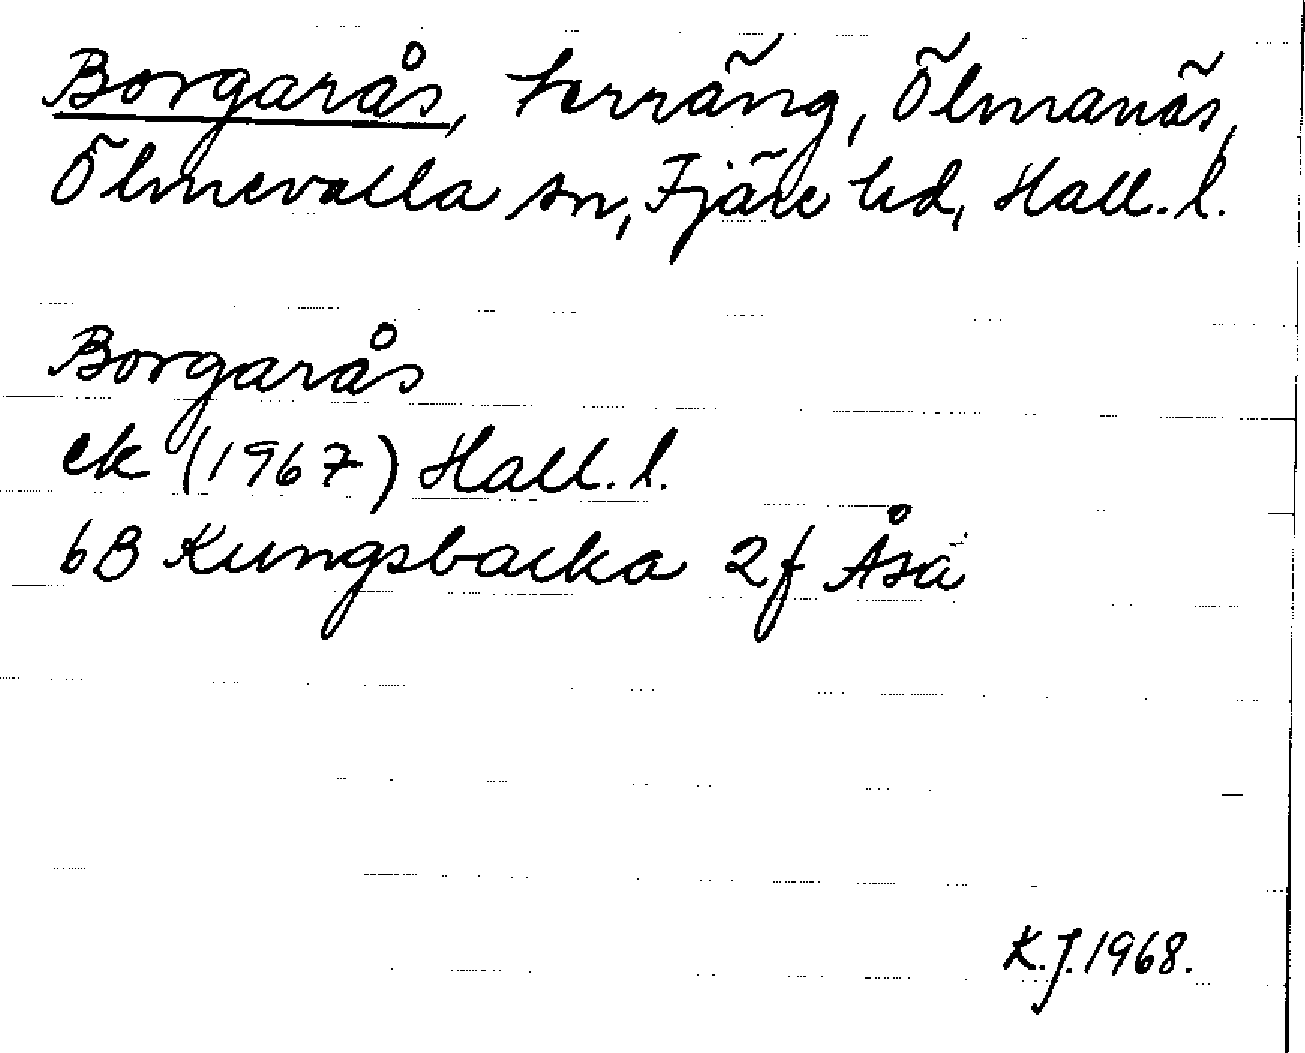 Borgarås, terräng, Ölmanäs,
Ölmevalla sn, Fjäre hd, Hall. l.
Borgarås
ek (1967) Hall. l.
6B Kungsbacka 2f Åsa
K.J. 1968.